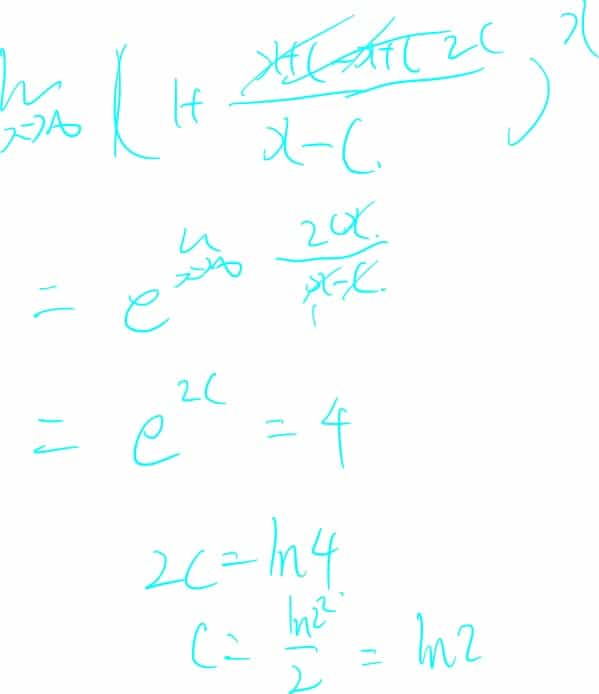 lim x→∞ (1 + 2c / (x - c))^x
= e^(lim x→∞ 2cx / (x - c))
= e^(2c) = 4
2c = ln4
c = ln2² / 2 = ln2